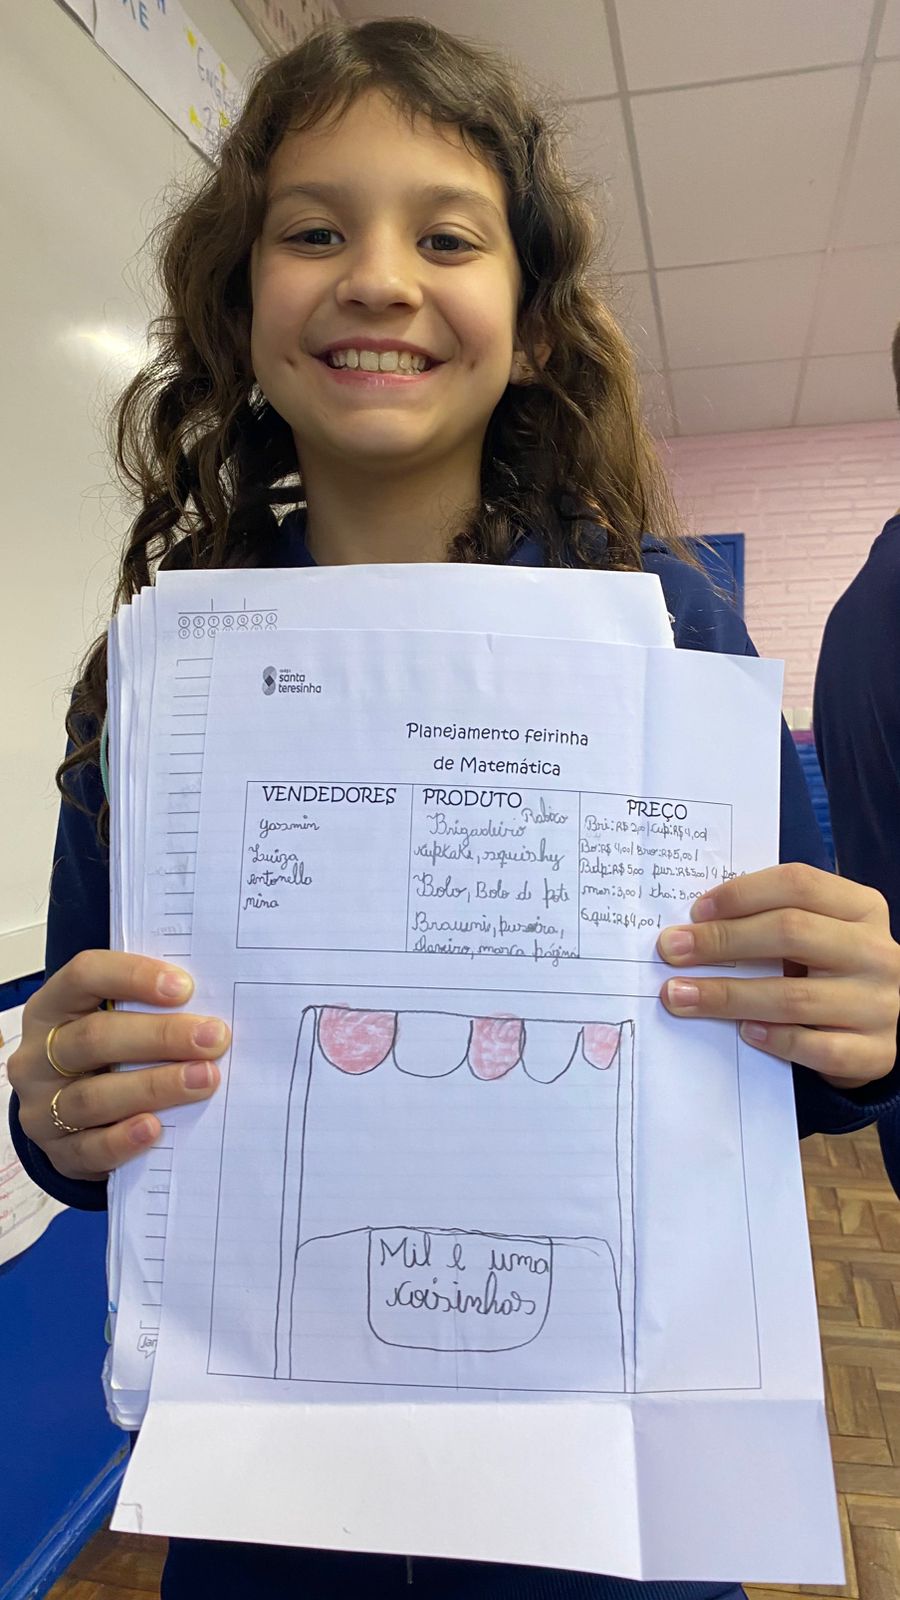 D S T Q Q S S
santa
teresinha
Planejamento feirinha
de Matemática
VENDEDORES
Yasmin
Luiza
antonella
nina
PRODUTO
Rabico
Brigadeiro
kupkaki, squishy
Bolo, Bolo de pote
Brauuni, puseira,
chaveiro, marca página
PREÇO
Bri: R$ 2,00/ Cup: R$ 4,00/
Bo: R$ 4,00/ Bro: R$ 5,00/
Bdp: R$ 5,00 pur: R$ 5,00/ 4 por
mar: 3,00/ cha: 5,00
Squi: R$ 4,00/
Mil e uma
coisinhas